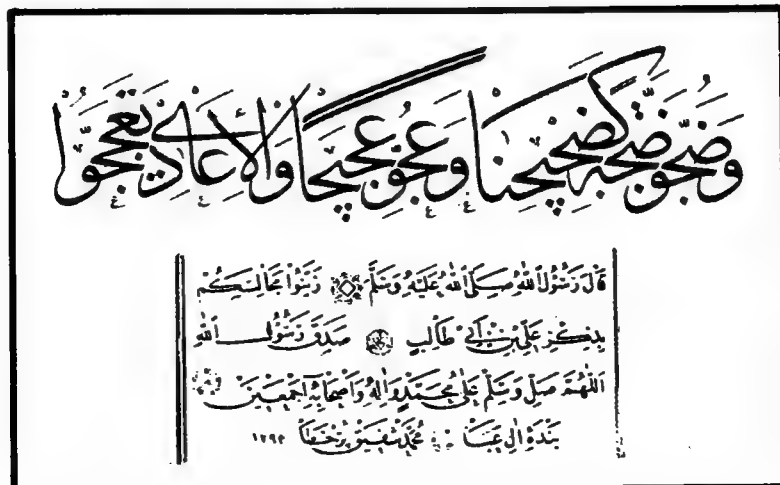 وَضَجُّوا ضَجَّةً كَضَجِيجِنَا وَعَجُّوا عَجِيجًا وَالْأَعَادِي
قَالَ رَسُولُ اللهِ صَلَّى اللهُ عَلَيْهِ وَسَلَّمَ زَيِّنُوا مَجَالِسَكُمْ
بِذِكْرِ عَلِيِّ بْنِ أَبِي طَالِبٍ صَدَقَ رَسُولُ اللهِ
اَللّٰهُمَّ صَلِّ وَسَلِّمْ عَلَى مُحَمَّدٍ وَاٰلِهِ وَاَصْحَابِهِ اَجْمَعِينَ
بَنْدَهٔ اٰلِ عَبَا مُحَمَّد شَفِيق ١٢٩٣